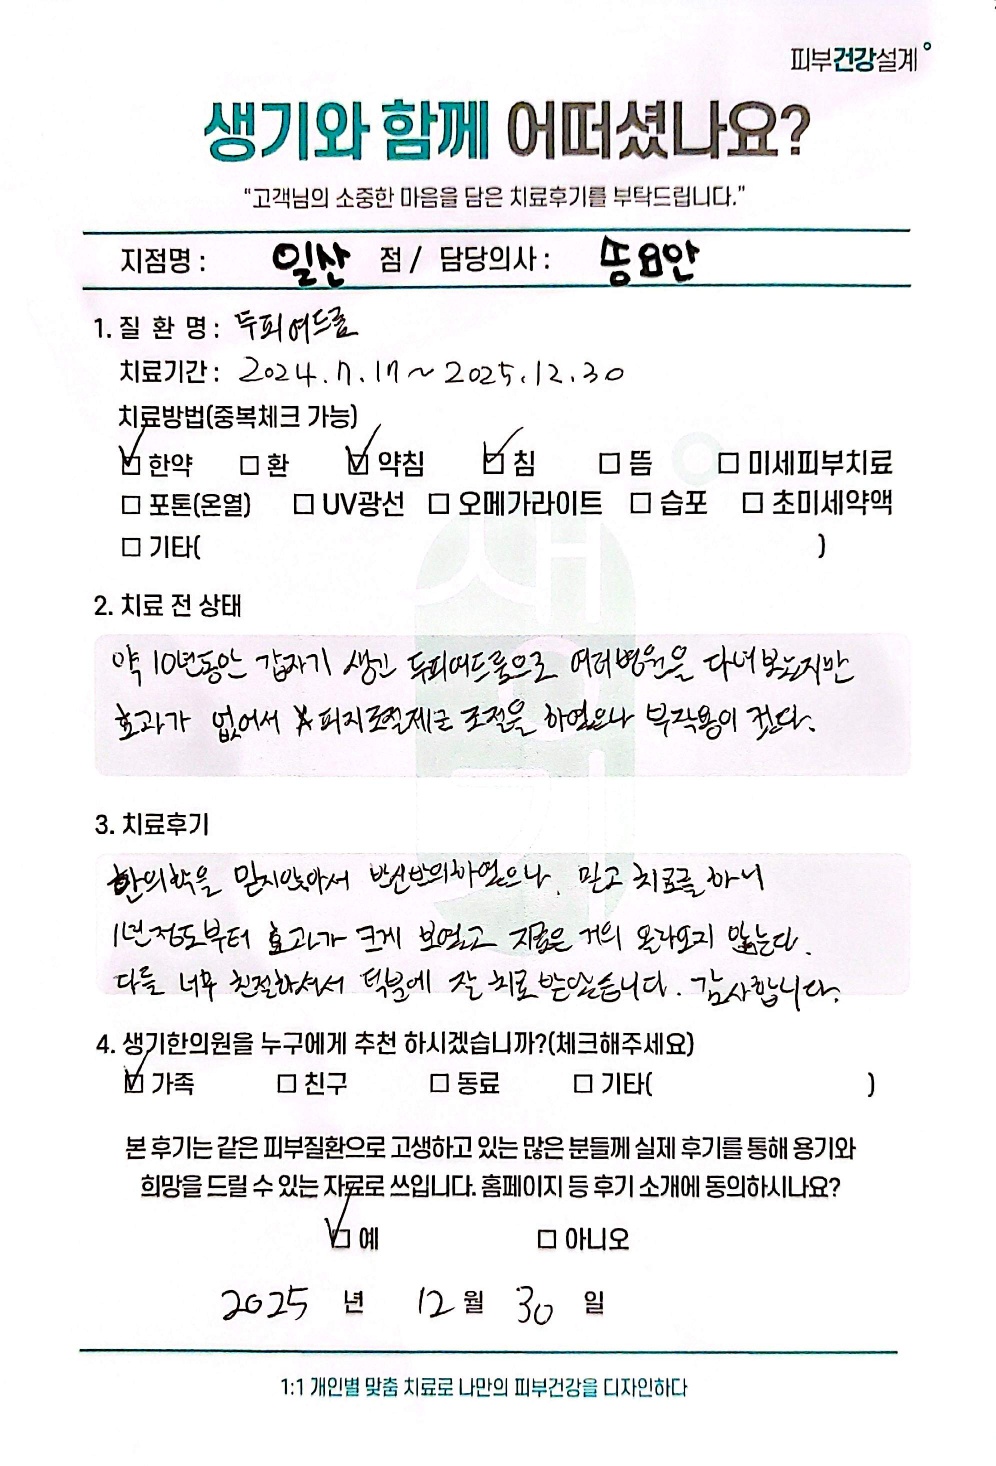 피부건강설계
생기와 함께 어떠셨나요?
“고객님의 소중한 마음을 담은 치료후기를 부탁드립니다.”
지점명 : 일산 점 / 담당의사 :
1. 질 환 명 : 두피여드름
치료기간 : 2024.7.17 ~ 2025.12.30
치료방법(중복체크 가능)
☑ 한약 □ 환 ☑ 약침 ☑ 침 □ 뜸 □ 미세피부치료
□ 포톤(온열) □ UV광선 □ 오메가라이트 □ 습포 □ 초미세약액
□ 기타( )
2. 치료 전 상태
약 10년동안 갑자기 생긴 두피여드름으로 여러병원을 다녀보았지만
효과가 없어서 피지조절제로 조절을 하였으나 부작용이 컸다.
3. 치료후기
한의학을 믿지않아서 반신반의하였으나, 믿고 치료를 하니
1년정도부터 효과가 크게 보였고 지금은 거의 올라오지 않는다.
다들 너무 친절하셔서 덕분에 잘 치료받았습니다. 감사합니다.
4. 생기한의원을 누구에게 추천 하시겠습니까?(체크해주세요)
☑ 가족 □ 친구 □ 동료 □ 기타( )
본 후기는 같은 피부질환으로 고생하고 있는 많은 분들께 실제 후기를 통해 용기와
희망을 드릴 수 있는 자료로 쓰입니다. 홈페이지 등 후기 소개에 동의하시나요?
☑ 예 □ 아니오
2025 년 12 월 30 일
1:1 개인별 맞춤 치료로 나만의 피부건강을 디자인하다
생기